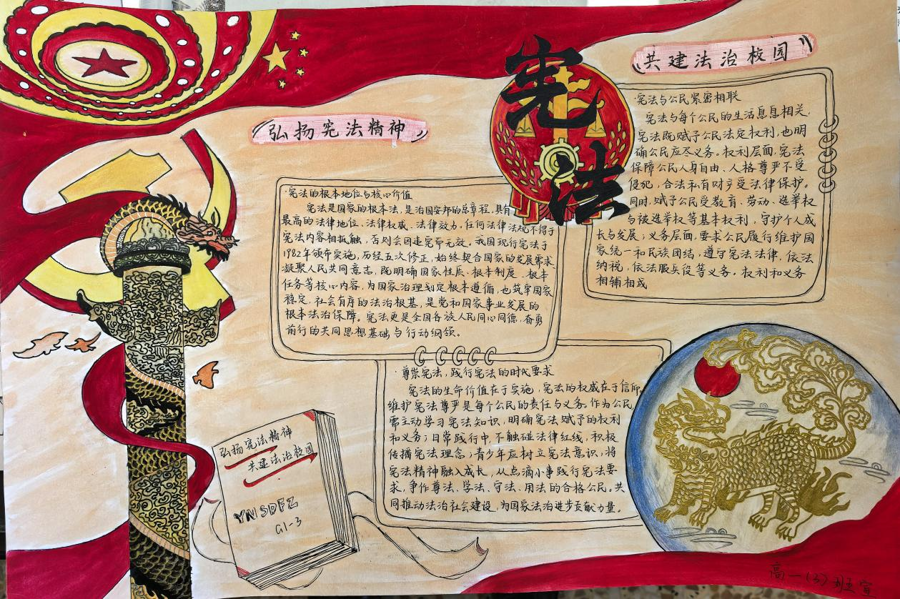 宪法
弘扬宪法精神
共建法治校园
宪法的根本地位与核心价值
宪法是国家的根本法,是治国安邦的总章程,具有
最高的法律地位、法律权威、法律效力,任何法律法规不得与
宪法内容相抵触,否则会因违宪而无效。我国现行宪法于
1982年颁布实施,历经五次修正,始终契合国家的发展需求
凝聚人民共同意志,既明确国家性质、根本制度、根本
任务等核心内容,为国家治理划定根本遵循,也筑牢国家
稳定、社会有序的法治根基,是党和国家事业发展的
根本法治保障。宪法更是全国各族人民同心同德、奋勇
前行的共同思想基础与行动纲领。
宪法与公民紧密相联
宪法与每个公民的生活息息相关,
宪法既赋予公民法定权利,也明
确公民应尽义务。权利层面,宪法
保障公民人身自由、人格尊严不受
侵犯,合法私有财产受法律保护。
同时,赋予公民受教育、劳动、选举权
与被选举权等基本权利,守护个人成
长与发展,义务层面,要求公民履行维护国
家统一和民族团结,遵守宪法法律、依法
纳税,依法服兵役等义务。权利和义务
相辅相成
尊崇宪法,践行宪法的时代要求
宪法的生命价值在于实施,宪法的权威在于信仰
维护宪法尊严是每个公民的责任与义务。作为公民
需主动学习宪法知识,明确宪法赋予的权利
和义务;日常践行中,不触碰法律红线,积极
传播宪法理念;青少年应树立宪法意识,将
宪法精神融入成长,从点滴小事践行宪法要
求,争作尊法、学法、守法、用法的合格公民。共
同推动法治社会建设,为国家法治进步贡献力量。
弘扬宪法精神
共建法治校园
YNSDFZ
G1-3
高一(3)班宣